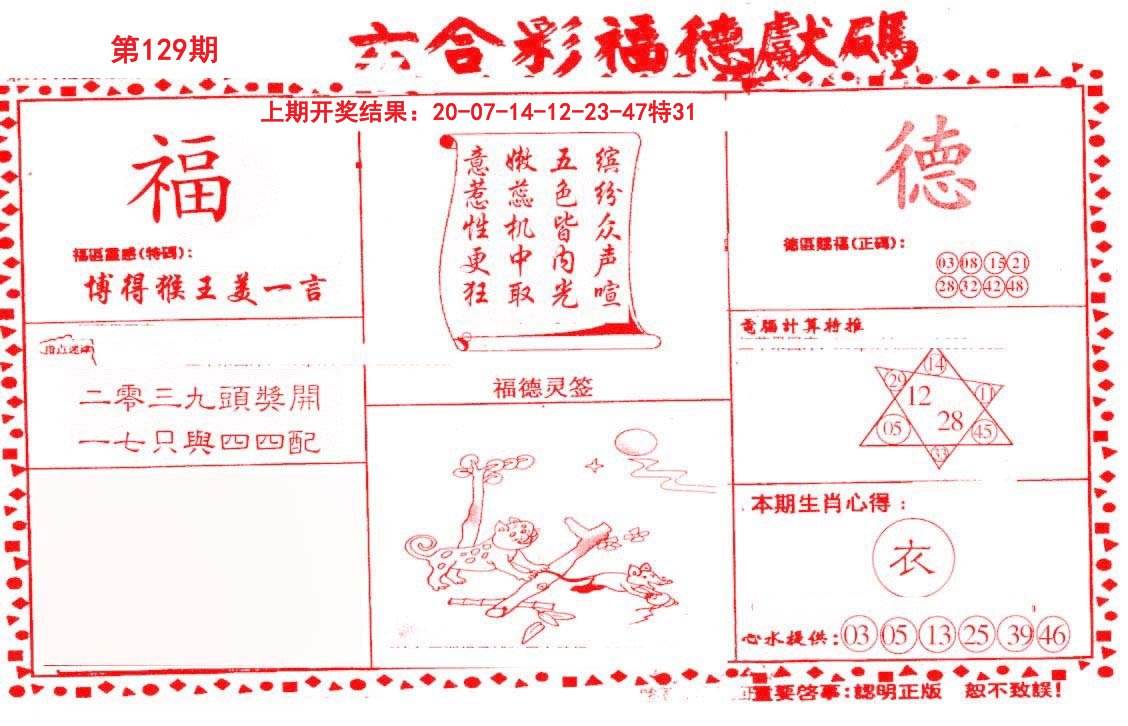 第129期
六合彩福德獻碼
上期开奖结果：20-07-14-12-23-47特31
福
福區靈感(特碼)：
博得猴王美一言
缤纷众声喧
五色皆内光
嫩蕊机中取
意惹性更狂
德
德區賜福(正碼)：
03 08 15 21
28 32 42 48
指点迷津
二零三九頭獎開
一七只與四四配
福德灵签
電腦計算特推
14
29 11
12
28
05 45
33
本期生肖心得：
衣
心水提供：03 05 13 25 39 46
重要啓事：認明正版 恕不致誤！